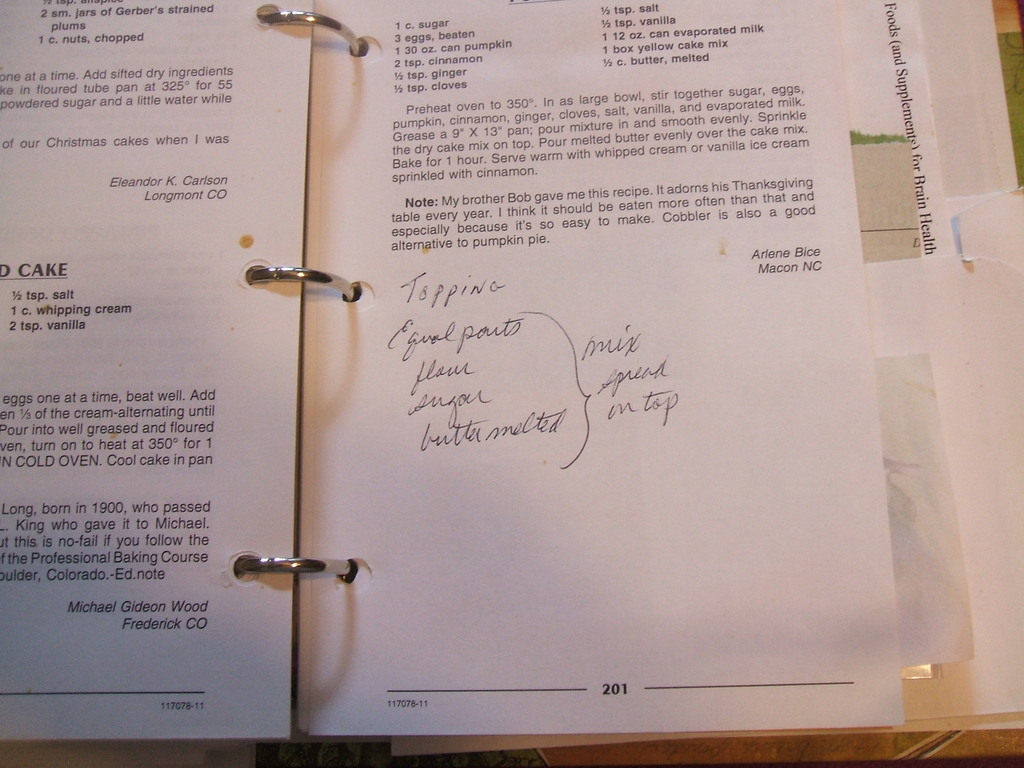 2 sm. jars of Gerber's strained
plums
1 c. nuts, chopped
one at a time. Add sifted dry ingredients
ke in floured tube pan at 325° for 55
powdered sugar and a little water while
of our Christmas cakes when I was
Eleandor K. Carlson
Longmont CO
D CAKE
½ tsp. salt
1 c. whipping cream
2 tsp. vanilla
eggs one at a time, beat well. Add
en ⅓ of the cream-alternating until
Pour into well greased and floured
ven, turn on to heat at 350° for 1
IN COLD OVEN. Cool cake in pan
Long, born in 1900, who passed
L. King who gave it to Michael.
ut this is no-fail if you follow the
f the Professional Baking Course
oulder, Colorado.-Ed.note
Michael Gideon Wood
Frederick CO
117078-11
1 c. sugar
3 eggs, beaten
1 30 oz. can pumpkin
2 tsp. cinnamon
½ tsp. ginger
½ tsp. cloves
½ tsp. salt
½ tsp. vanilla
1 12 oz. can evaporated milk
1 box yellow cake mix
½ c. butter, melted
Preheat oven to 350°. In as large bowl, stir together sugar, eggs,
pumpkin, cinnamon, ginger, cloves, salt, vanilla, and evaporated milk.
Grease a 9" X 13" pan; pour mixture in and smooth evenly. Sprinkle
the dry cake mix on top. Pour melted butter evenly over the cake mix.
Bake for 1 hour. Serve warm with whipped cream or vanilla ice cream
sprinkled with cinnamon.
Note: My brother Bob gave me this recipe. It adorns his Thanksgiving
table every year. I think it should be eaten more often than that and
especially because it's so easy to make. Cobbler is also a good
alternative to pumpkin pie.
Arlene Bice
Macon NC
Topping
Equal parts
flour
sugar
butter melted
mix
spread
on top
201
117078-11
Foods (and Supplements) for Brain Health